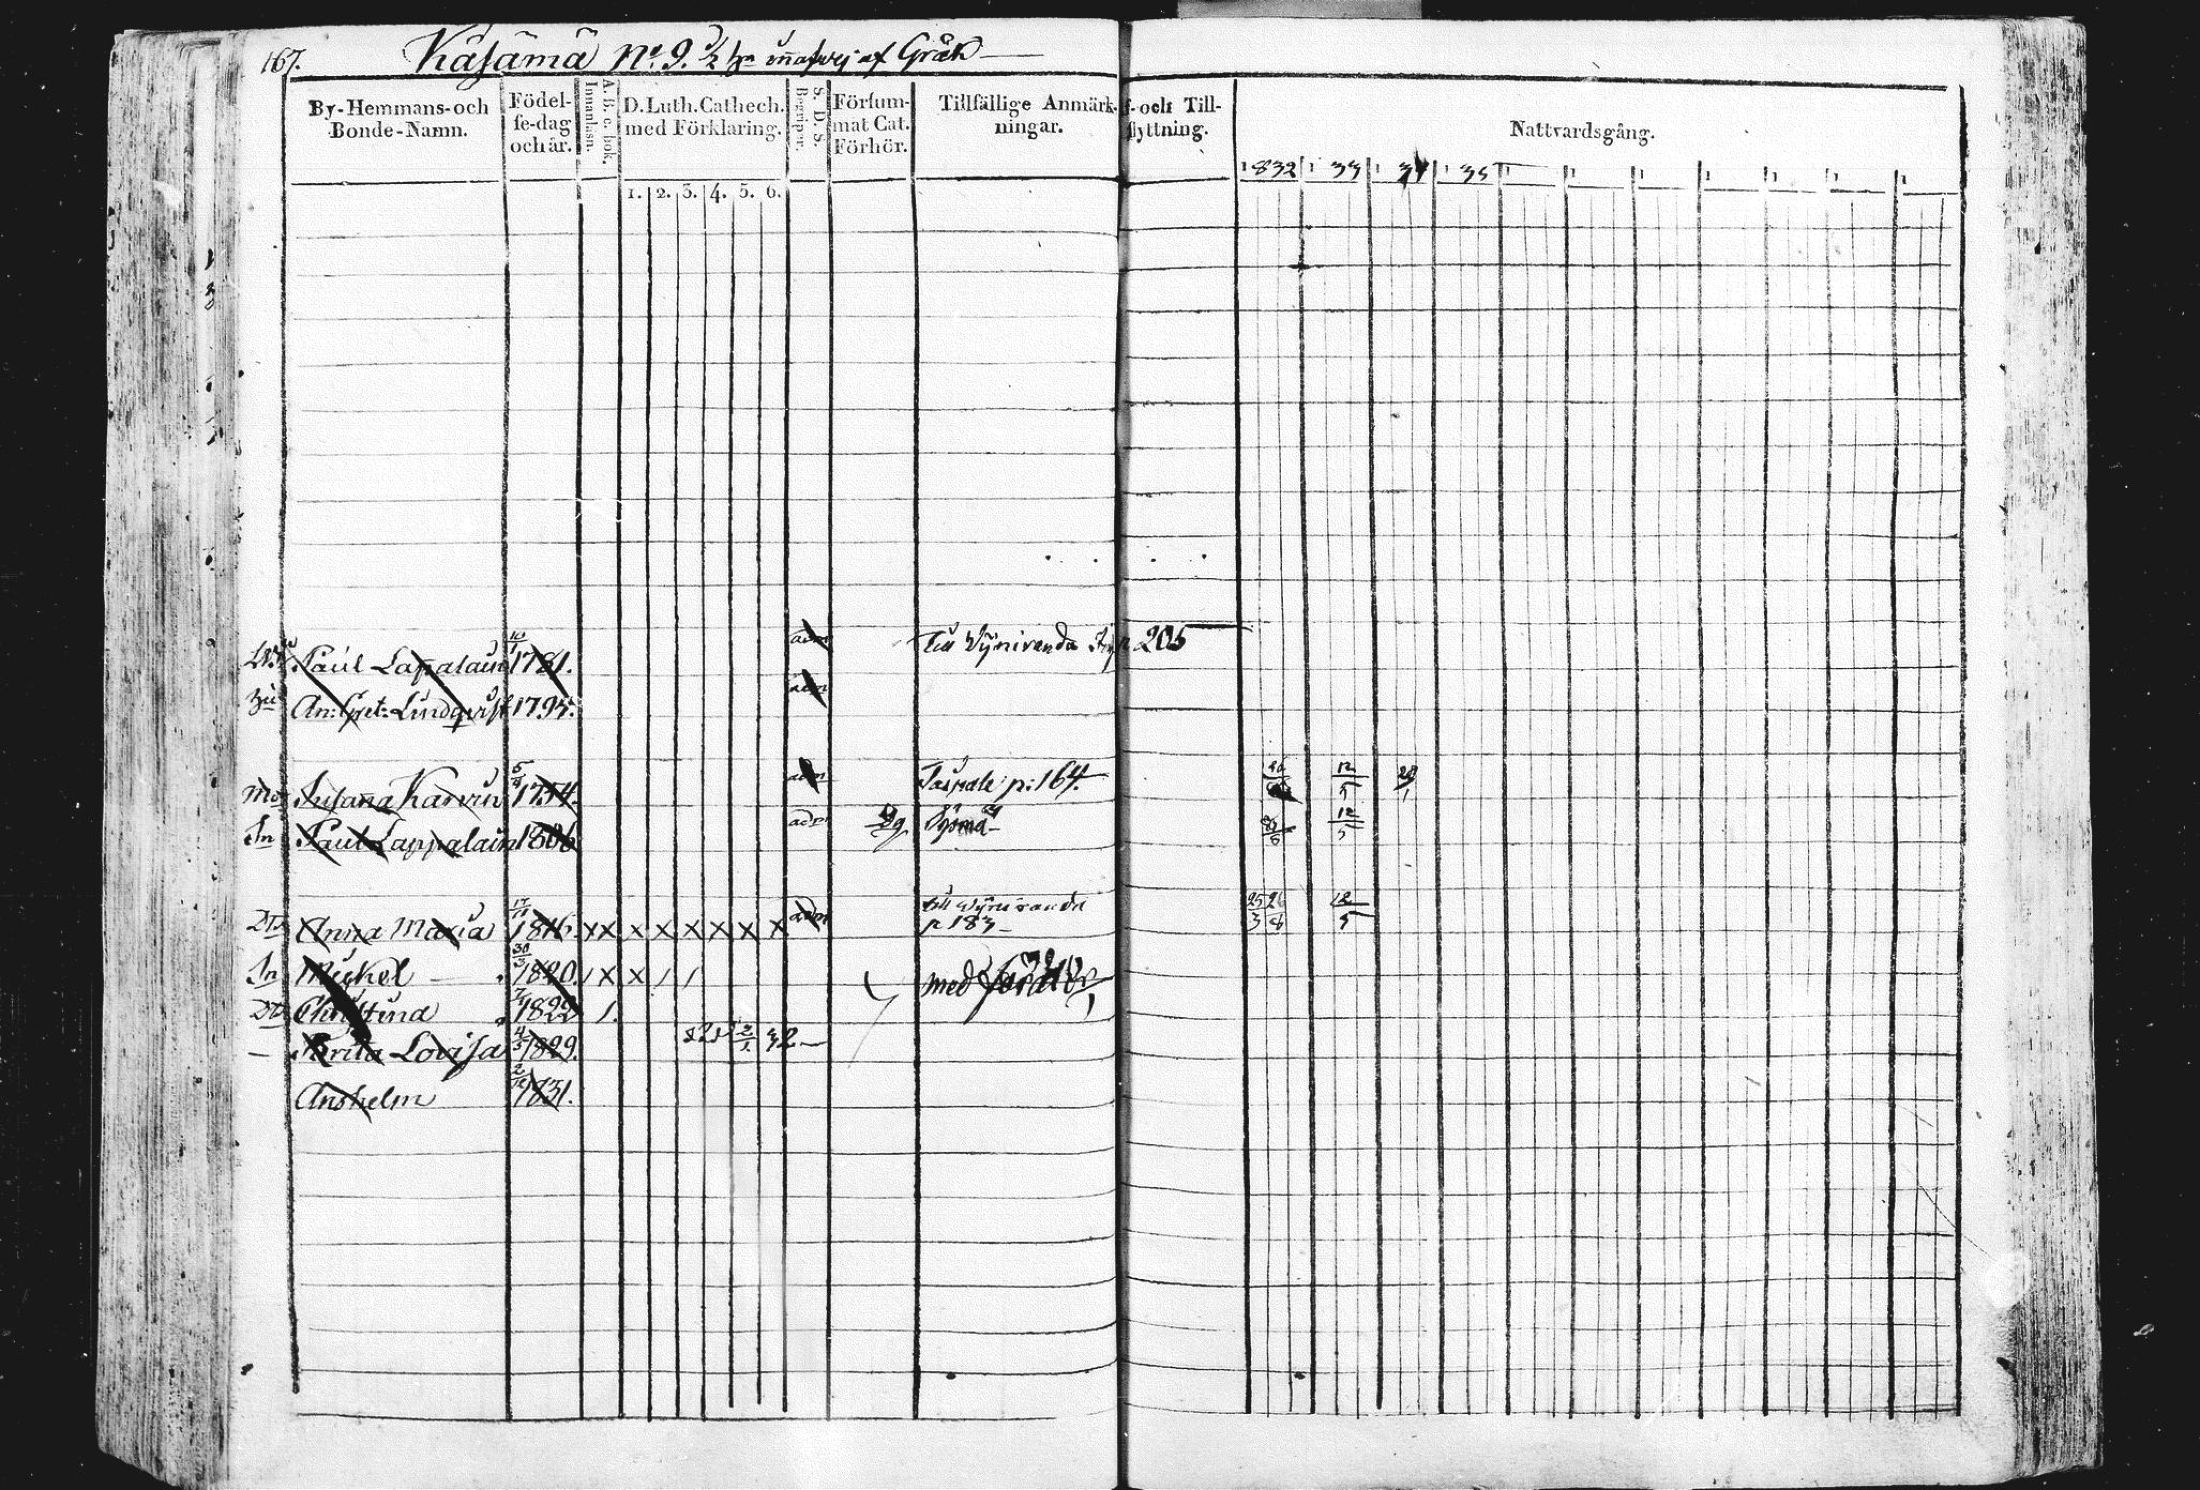 167. Käsämä No. 9. 1/2 af Gråk
By-Hemmans-och Bonde-Namn.
Födel-se-dag och år.
A. B. c. bok. Innanläsn.
D. Luth. Cathech. med Förklaring.
1. 2. 3. 4. 5. 6.
S. D. S. Begriper.
Försum-mat Cat. Förhör.
Tillfällige Anmärk-ningar.
f- och Till-flyttning.
Nattvardsgång.
1832 1 33 1 34 1 35 1 1 1 1 1 1 1
Paul Lappalain 1781. adm Till Wÿniranda p 205
Hu An: Gret: Lindqvist 1795. adm
Mo Susaña Karvin 5/8 1754. adm Taipale p: 164. 12/5
Sn Paul Lappalain 1806 adm 12/5
Dtr Anna Maria 17/11 1816. x x x x x x x x adm till Wÿniranda p 183 25/3 26/8
Sn Michel 30/3 1820. / x x / / med föräldr
Dtr Christina 1822 /.
— Brita Lovisa 4/5 1829. 2/1 32.
Anshelm 2/12 1831.